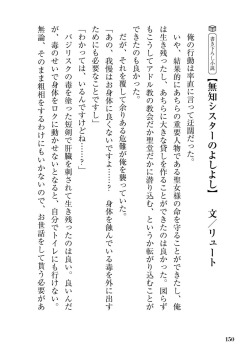 書き下ろし小説
【無知シスターのよしよし】　文／リュート
俺の行動は率直に言って迂闊だった。
いや、結果的にあちらの重要人物である聖女様の命を守ることができたし、俺
は生き残ったし、あちらに大きな貸しを作ることができたのは良かった。図らず
もこうしてアドル教の教会だか聖堂だかに潜り込む、という か転がり込むことが
できたのも良かった。
だが、それを覆して余りある危難が俺を襲っていた。
「あの、我慢はお身体に良くないですよ……？　身体を蝕んでいる毒を外に出す
ためにも必要なことですし」
「わかってはい、いるんですけどね……？」
バジリスクの毒を塗った短剣で肝臓を刺されて生き残ったのは良い。良いんだ
が、毒のせいで身体をロクに動かせないとなると、自分でトイレにも行けない。
無論、そのまま粗相をするわけにもいかないので、お世話をして貰う必要があ
150